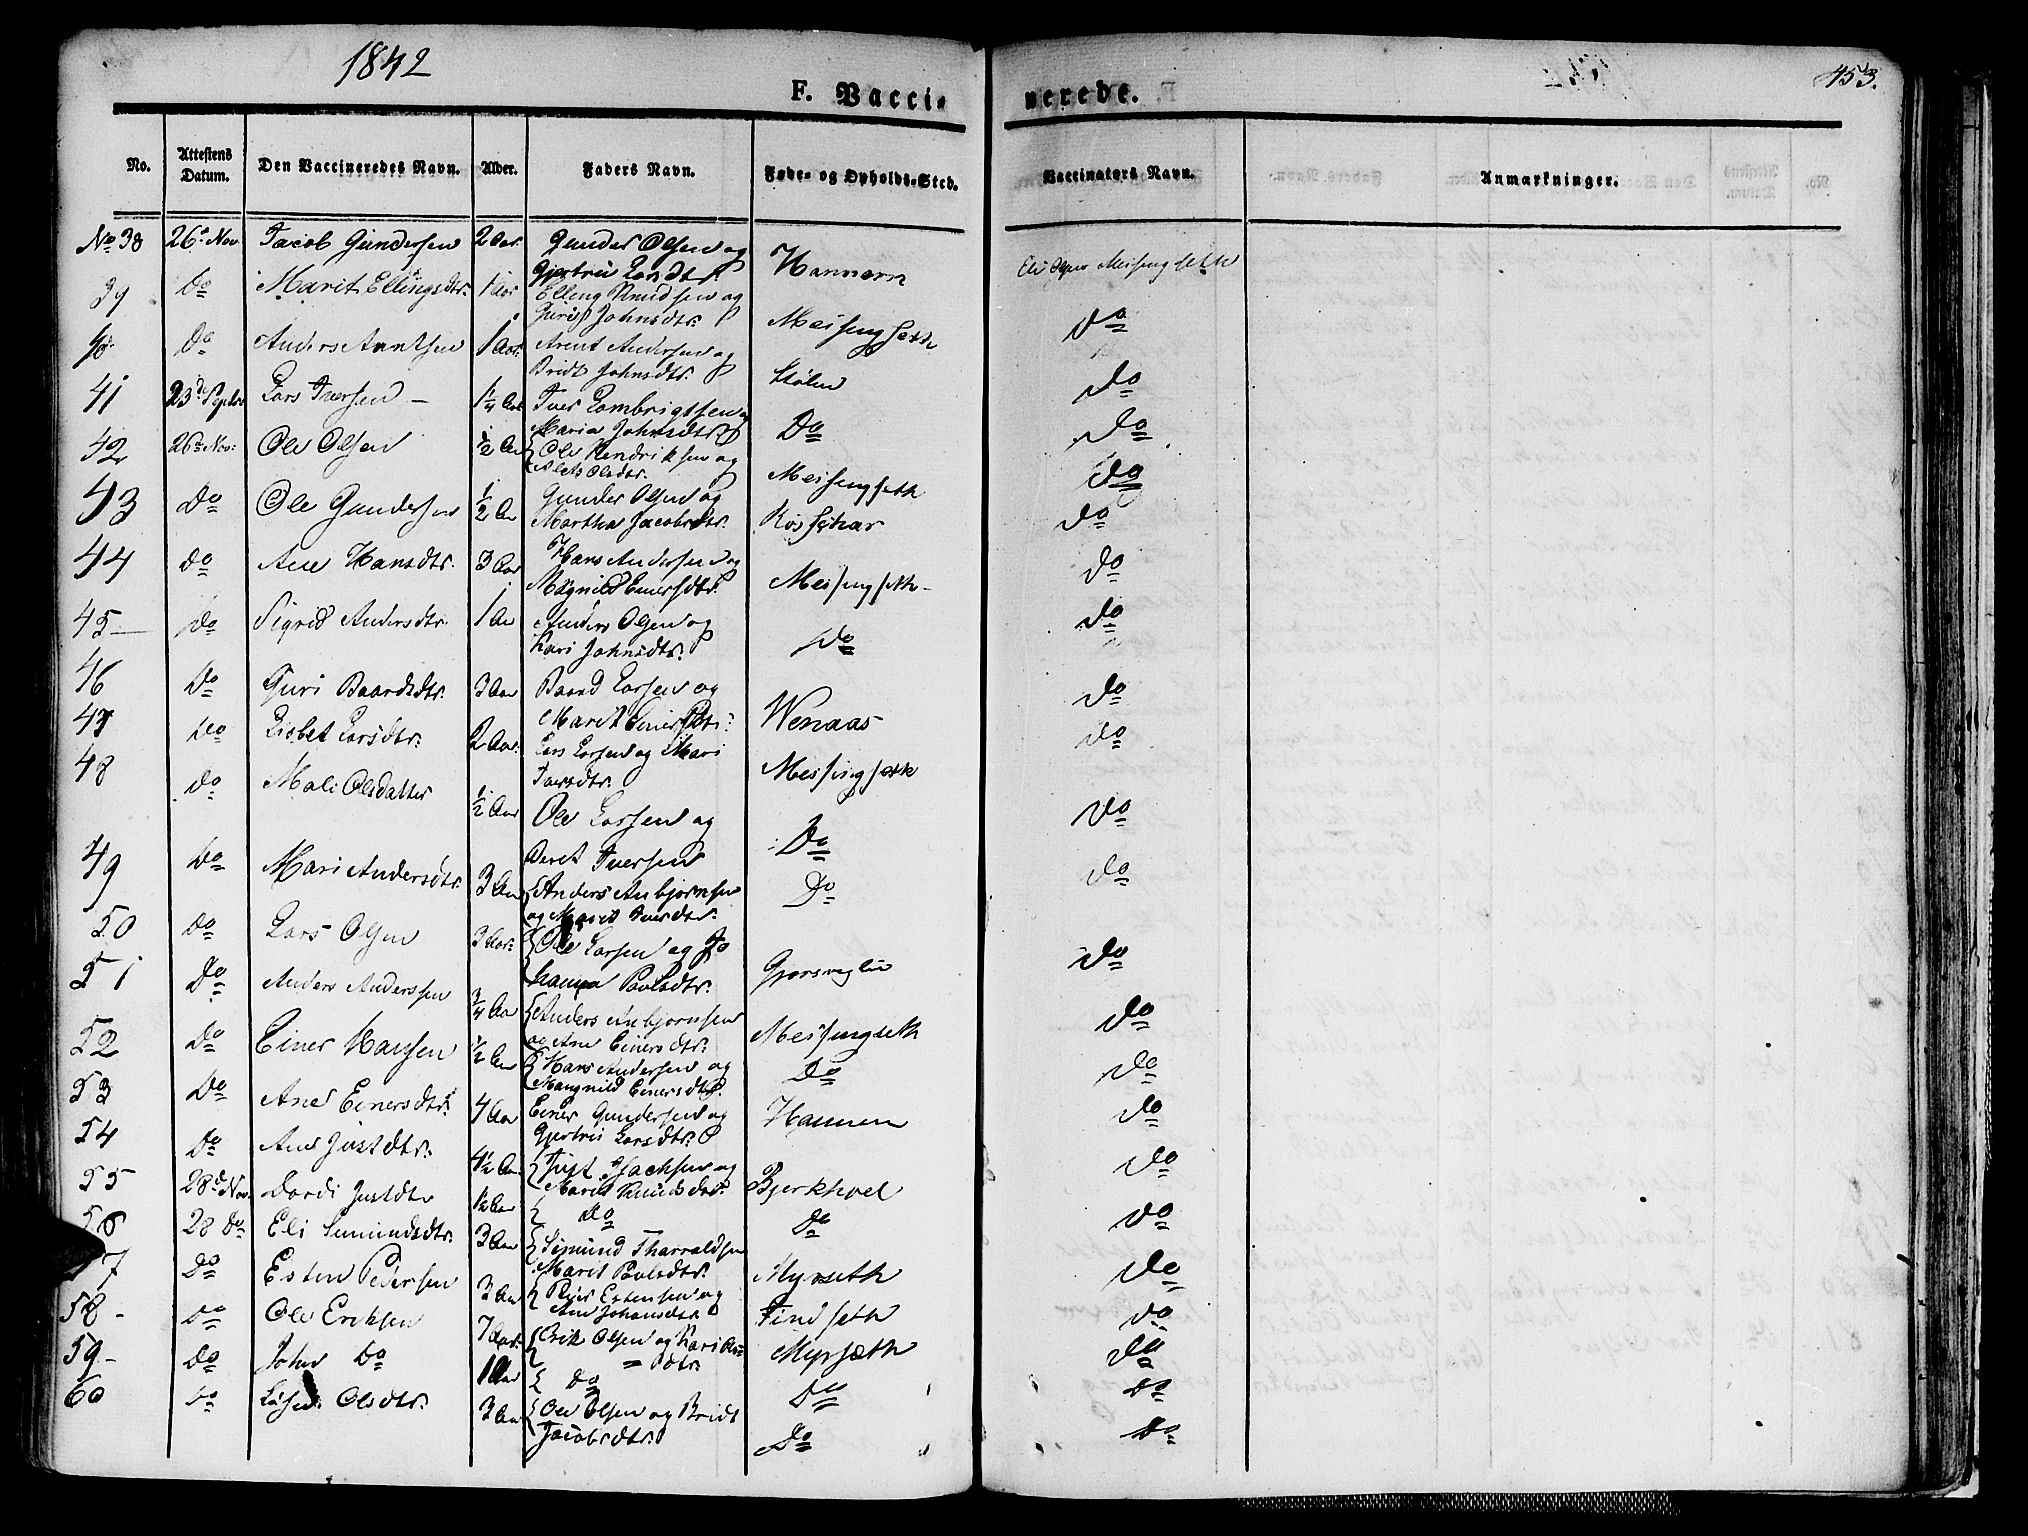 1842
453.
F. Vacci-
nerede.
No.
Attestens Datum.
Den Vaccineredes Navn.
Alder.
Faders Navn.
Føde- og Opholds-Sted.
Vaccinators Navn.
Anmærkninger.
No 38 26de Nov Jacob Gundersen 2 Aar. Gunder Olsen og Hannem
39 Do Marit Ellingsdtr. 1 Aar Elling Knudsen og Meisingseth Do
Johnsdtr.
40 Do Anders Arntsen 1 Aar Arent Andersen og Stølen Do
Bridt Johnsdtr.
41 23de Septbr Lars Iversen 1¼ Aar Iver Lambrigtsen og Do Do
Maria Johnsdtr.
42 26de Nov: Ole Olsen ½ Aar Ole Hendriksen og Meisingseth Do
Olsdtr.
43 Do Ole Gundersen ½ Aar Gunder Olsen og Do
Martha Jacobsdtr.
44 Do Ane Hansdtr. 3 Aar Hans Andersen og Meisingseth Do
Magnild Einersdtr.
45 Do Sigrid Andersdtr. 1 Aar Anders Olsen og Do Do
Kari Johnsdtr.
46 Do Guri Baardsdtr. 3 Aar Baard Larsen og Wenaas Do
Marit Einersdtr.
47 Do Lisbet Larsdtr. 2 Aar. Lars Larsen og Mari Meisingseth Do
Iversdtr.
48 Do Mali Olsdatter ½ Aar Ole Larsen og Do Do
Beret Iversen
49 Do Mari Andersdtr. 3 Aar Anders Anbjørnsen Do Do
og Marit Iversdtr.
50 Do Lars Olsen 3 Aar: Ole Larsen og Jo Do
hanna Povlsdtr.
51 Do Anders Anderssen ¾ Aar Anders Anbjørnsen Meisingseth Do
og Ane Einersdtr.
52 Do Einer Hansen ½ Aar Hans Andersen og Do Do
Magnild Einersdtr.
53 Do Ane Einersdtr. 4 Aar Einer Gundersen og Hannem Do
Larsdtr.
54 Do Ane Justdtr. 4½ Aar Just og Bjerkhoel Do
Marit Knudsdtr.
55 28de Nov. Dordi Justdtr 1½ Aar Do Do Do
56 28 Do Eli Simundsdtr. 3 Aar Simund Tharraldsen Myrseth Do
Marit Povlsdtr.
57 Do Esten Pedersen 3 Aar Peder Estensen og Findseth Do
Ane Johansdtr
58 - Do Ole Eriksen 7 Aar. Erik Olsen og Kari Myrsæth Do
dtr.
59 - Do John Do 1 Aar Do Do Do
60 Do Olsdtr. 3 Aar Ole Olsen og Bridt Do Do
Jacobsdtr.